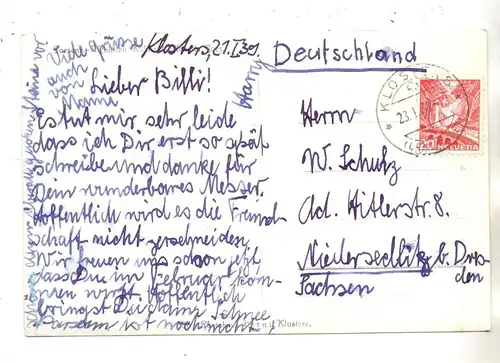 Klosters, 21.I.39
Lieber Billi!
Es tut mir sehr leide
dass ich Dir erst so spät
schreibe und danke für
Dein wunderbares Messer.
Hoffentlich wird es die Freund-
schaft nicht zerschneiden.
Wir freuen uns schon jetzt,
dass Du im Februar kom-
men wirst. Hoffentlich
bringst Du dann Schnee.
Parsenn ist noch nicht
Viele Grüsse
auch
von
Mama.
Harry
Deutschland
Herrn
W. Schulz
Ad. Hitlerstr. 8.
Niedersedlitz b. Dres-
den
Sachsen
KLOSTERS
23.I.
20
HELVETIA
Klosters.